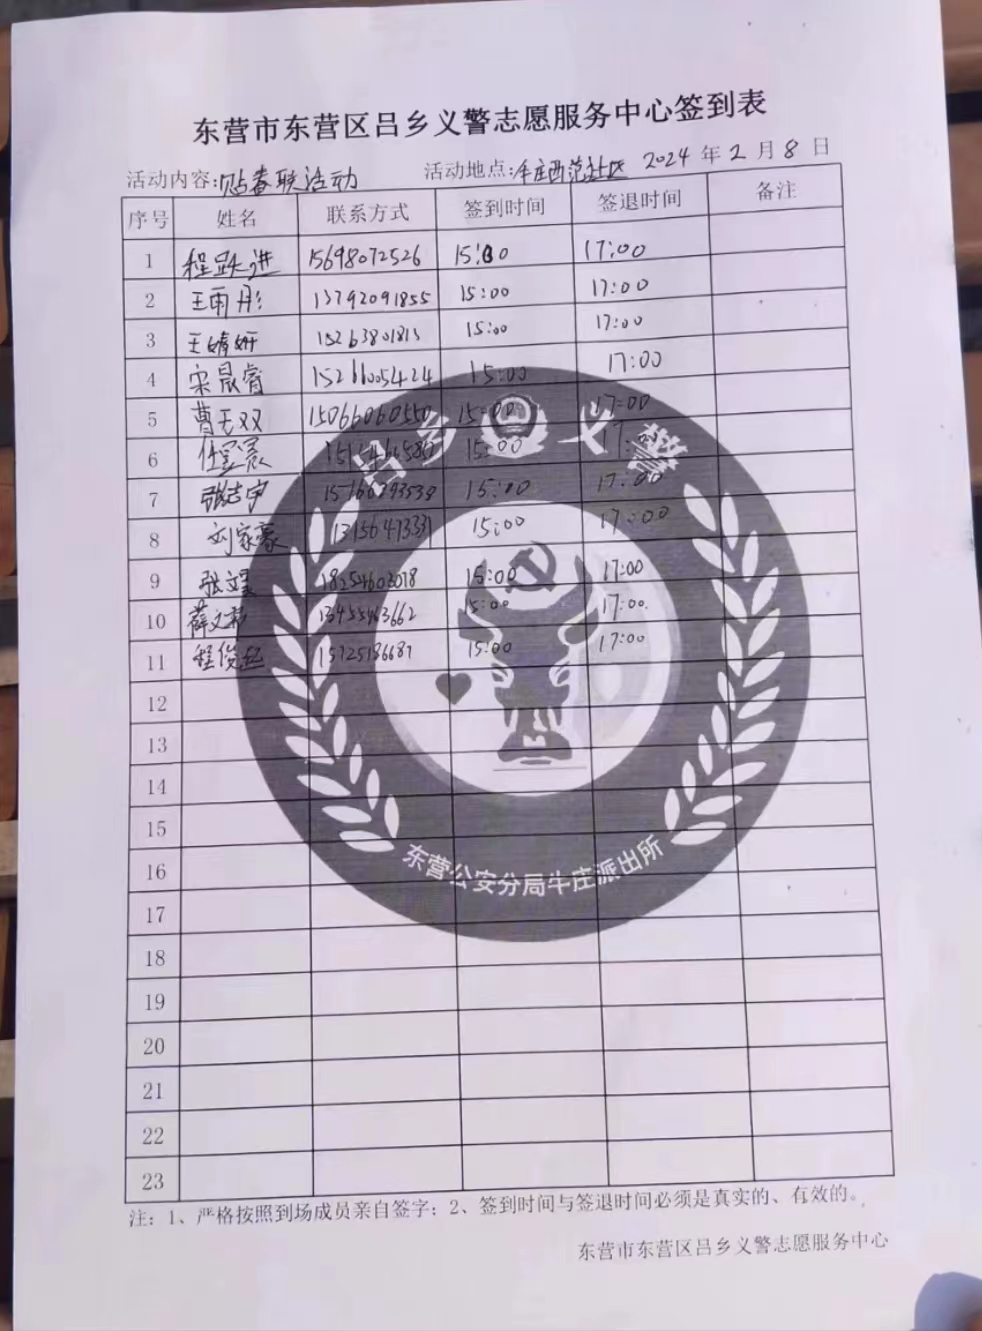 东营市东营区吕乡义警志愿服务中心签到表
活动内容:贴春联活动 活动地点:牛庄西范社区 2024年2月8日
序号 姓名 联系方式 签到时间 签退时间 备注
1 程跃进 15698072526 15:00 17:00
2 王雨彤 13792091855 15:00 17:00
3 王婧妍 15263801813 15:00 17:00
4 宋晟睿 15:00 17:00
5 曹玉双 15066060550 15:00 17:00
6 15:00 17:00
7 张志宇 15:00 17:00
8 刘家豪 15:00 17:00
9 张文 18254603078 15:00 17:00
10 薛文 13455463662 15:00 17:00
11 程俊 15725186687 15:00 17:00
12
13
14
15
16
17
18
19
20
21
22
23
吕乡义警
东营公安分局牛庄派出所
注：1、严格按照到场成员亲自签字；2、签到时间与签退时间必须是真实的、有效的。
东营市东营区吕乡义警志愿服务中心